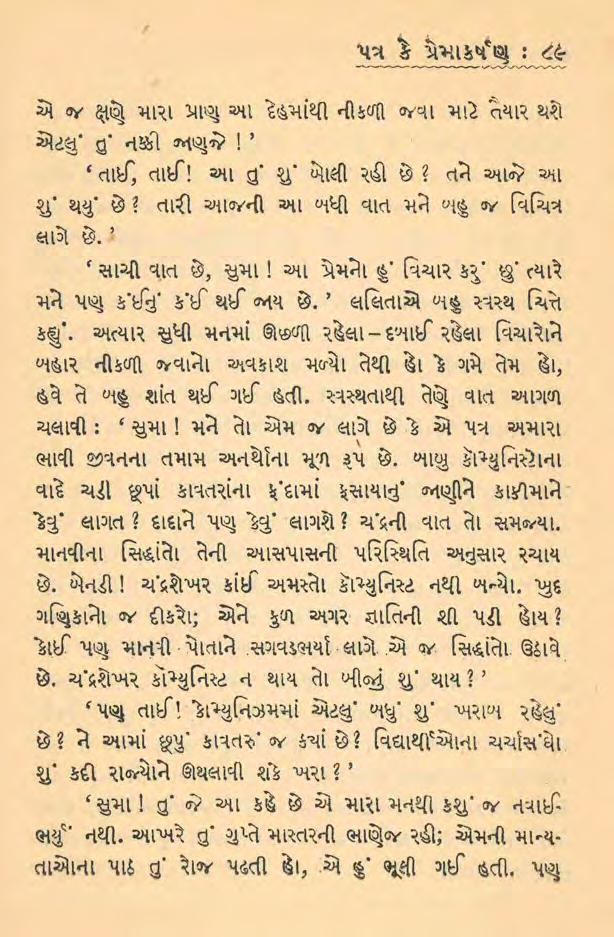 પત્ર કે પ્રેમાકર્ષણ : ૮૯
એ જ ક્ષણે મારા પ્રાણ આ દેહમાંથી નીકળી જવા માટે તૈયાર થશે
એટલું તું નક્કી જાણજે ! ’
‘ તાઈ, તાઈ! આ તું શું બોલી રહી છે ? તને આજે આ
શું થયું છે ? તારી આજની આ બધી વાત મને બહુ જ વિચિત્ર
લાગે છે. ’
‘ સાચી વાત છે, સુમા ! આ પ્રેમનો હું વિચાર કરું છું ત્યારે
મને પણ કંઈનું કંઈ થઈ જાય છે. ’ લલિતાએ બહુ સ્વસ્થ ચિત્તે
કહ્યું. અત્યાર સુધી મનમાં ઊછળી રહેલા – દબાઈ રહેલા વિચારોને
બહાર નીકળી જવાનો અવકાશ મળ્યો તેથી હો કે ગમે તેમ હો,
હવે તે બહુ શાંત થઈ ગઈ હતી. સ્વસ્થતાથી તેણે વાત આગળ
ચલાવી : ‘ સુમા ! મને તો એમ જ લાગે છે કે એ પત્ર અમારા
ભાવી જીવનના તમામ અનર્થોના મૂળ રૂપે છે. બાબુ કૉમ્યુનિસ્ટોના
વાદે ચડી છૂપાં કાવતરાંના ફંદામાં ફસાયાનું જાણીને કાકીમાને
કેવું લાગત ? દાદાને પણ કેવું લાગશે ? ચંદ્રની વાત તો સમજ્યા.
માનવીના સિદ્ધાંતો તેની આસપાસની પરિસ્થિતિ અનુસાર રચાય
છે. બેનડી ! ચંદ્રશેખર કાંઈ અમસ્તો કૉમ્યુનિસ્ટ નથી બન્યો. ખુદ
ગણિકાનો જ દીકરો; એને કુળ અગર જ્ઞાતિની શી પડી હોય ?
કોઈ પણ માનવી પોતાને સગવડભર્યા લાગે એ જ સિદ્ધાંતો ઉઠાવે
છે. ચંદ્રશેખર કૉમ્યુનિસ્ટ ન થાય તો બીજું શું થાય ? ’
‘ પણ તાઈ ! કોમ્યુનિઝમમાં એટલું બધું શું ખરાબ રહેલું
છે ? ને આમાં છૂપું કાવતરું જ ક્યાં છે ? વિદ્યાર્થીઓના ચર્ચાસંઘો
શું કદી રાજ્યોને ઊથલાવી શકે ખરા ? ’
‘ સુમા ! તું જે આ કહે છે એ મારા મનથી કશું જ નવાઈ-
ભર્યું નથી. આખરે તું ગુપ્તે માસ્તરની ભાણેજ રહી; એમની માન્ય-
તાઓના પાઠ તું રોજ પઢતી હો, એ હું ભૂલી ગઈ હતી. પણ